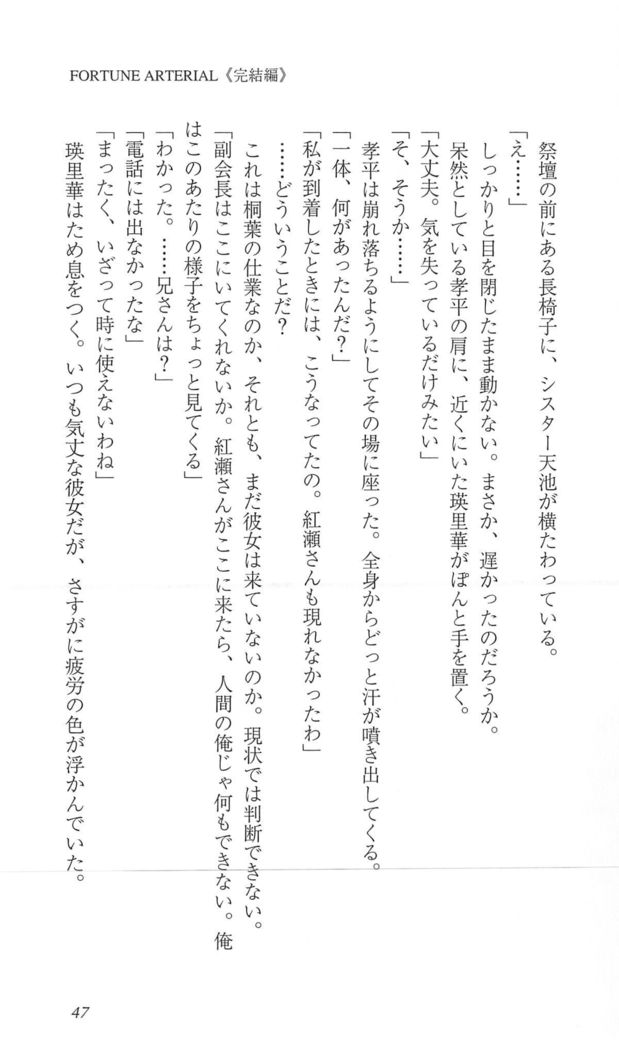 FORTUNE ARTERIAL《完結編》
　祭壇の前にある長椅子に、シスター天池が横たわっている。
「え……」
　しっかりと目を閉じたまま動かない。まさか、遅かったのだろうか。
　呆然としている孝平の肩に、近くにいた瑛里華がぽんと手を置く。
「大丈夫。気を失っているだけみたい」
「そ、そうか……」
　孝平は崩れ落ちるようにしてその場に座った。全身からどっと汗が噴き出してくる。
「一体、何があったんだ？」
「私が到着したときには、こうなってたの。紅瀬さんも現れなかったわ」
　……どういうことだ？
　これは桐葉の仕業なのか、それとも、まだ彼女は来ていないのか。現状では判断できない。
「副会長はここにいてくれないか。紅瀬さんがここに来たら、人間の俺じゃ何もできない。俺
はこのあたりの様子をちょっと見てくる」
「わかった。……兄さんは？」
「電話には出なかったな」
「まったく、いざって時に使えないわね」
　瑛里華はため息をつく。いつも気丈な彼女だが、さすがに疲労の色が浮かんでいた。
47